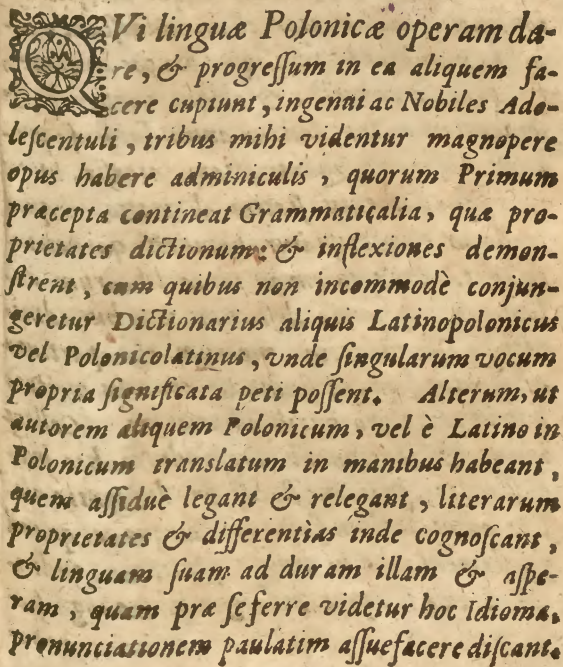 QVi linguæ Polonicæ operam da-
re, & progreſſum in ea aliquem fa-
cere cupiunt, ingenui ac Nobiles Ado-
leſcentuli, tribus mihi videntur magnopere
opus habere adminiculis, quorum Primum
præcepta contineat Grammaticalia, quæ pro-
prietates dictionum: & inflexiones demon-
ſtrent, cum quibus non incommodè conjun-
geretur Dictionarius aliquis Latinopolonicus
vel Polonicolatinus, vnde ſingularum vocum
propria ſignificata peti poſſent. Alterum, ut
autorem aliquem Polonicum, vel è Latino in
Polonicum translatum in manibus habeant,
quem aſſiduè legant & relegant, literarum
proprietates & differentias inde cognoſcant,
& linguam ſuam ad duram illam & aſpe-
ram, quam præ ſe ferre videtur hoc Idioma,
pronunciationem paulatim aſſuefacere diſcant.